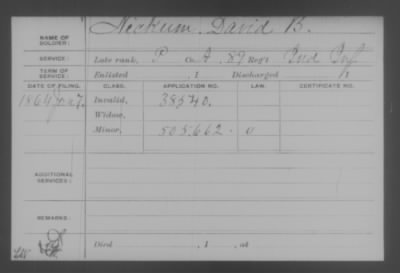 NAME OF SOLDIER: Nickum, David B.
SERVICE: Late rank, P Co. A, 89 Reg't Ind Inf
TERM OF SERVICE: Enlisted , 1 Discharged , 1
DATE OF FILING. CLASS. APPLICATION NO. LAW. CERTIFICATE NO.
1864 27. Invalid, 38540.
Widow,
Minor, 505.662. 
ADDITIONAL SERVICES:
REMARKS:
Died , 1 , at